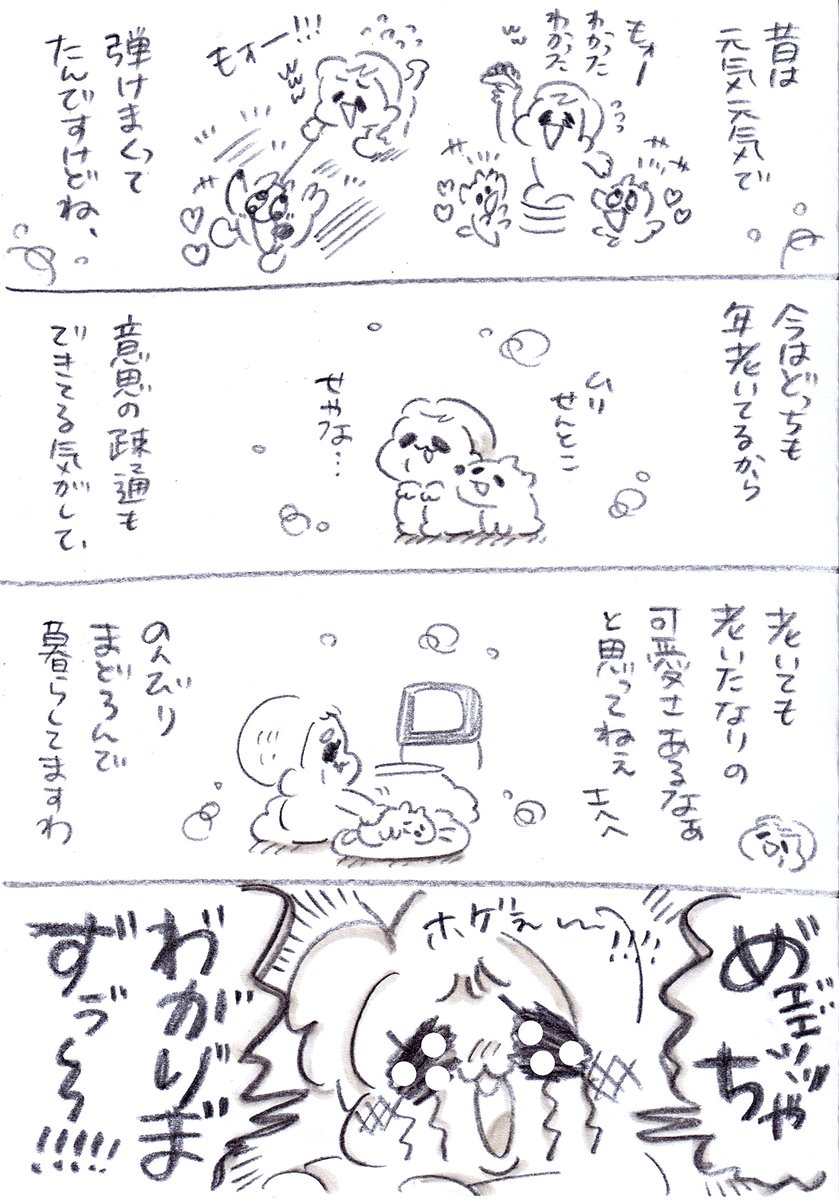 昔は
元気元気で
もォー
わかった
わかった
ww
もォー!!!
www
弾けまくって
たんですけどね、
今はどっちも
年老いてるから
ムリ
せんとこ
せやな…
意思の疎通も
できてる気がして、
老いても
老いたなりの
可愛さあるなぁ
と思ってねぇ
エへへ
のんびり
まどろんで
暮らしてますわ
め゛ェェッちゃ
ホゲェ〜〜!!!!
わ゛がりま゛
ず゛ゔ〜〜!!!!!